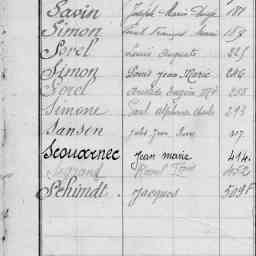 Savin Joseph Marie 181
Simon Paul François Marie 183
Sorel Louis Auguste 225
Simon Louis Jean Marie 286
Sorel Eugène 288
Simone Paul Alphonse Charles 293
Sansen Jules Jean 307
Scouarnec Jean marie 414
Legrand Raoul 452
Schimdt Jacques 509